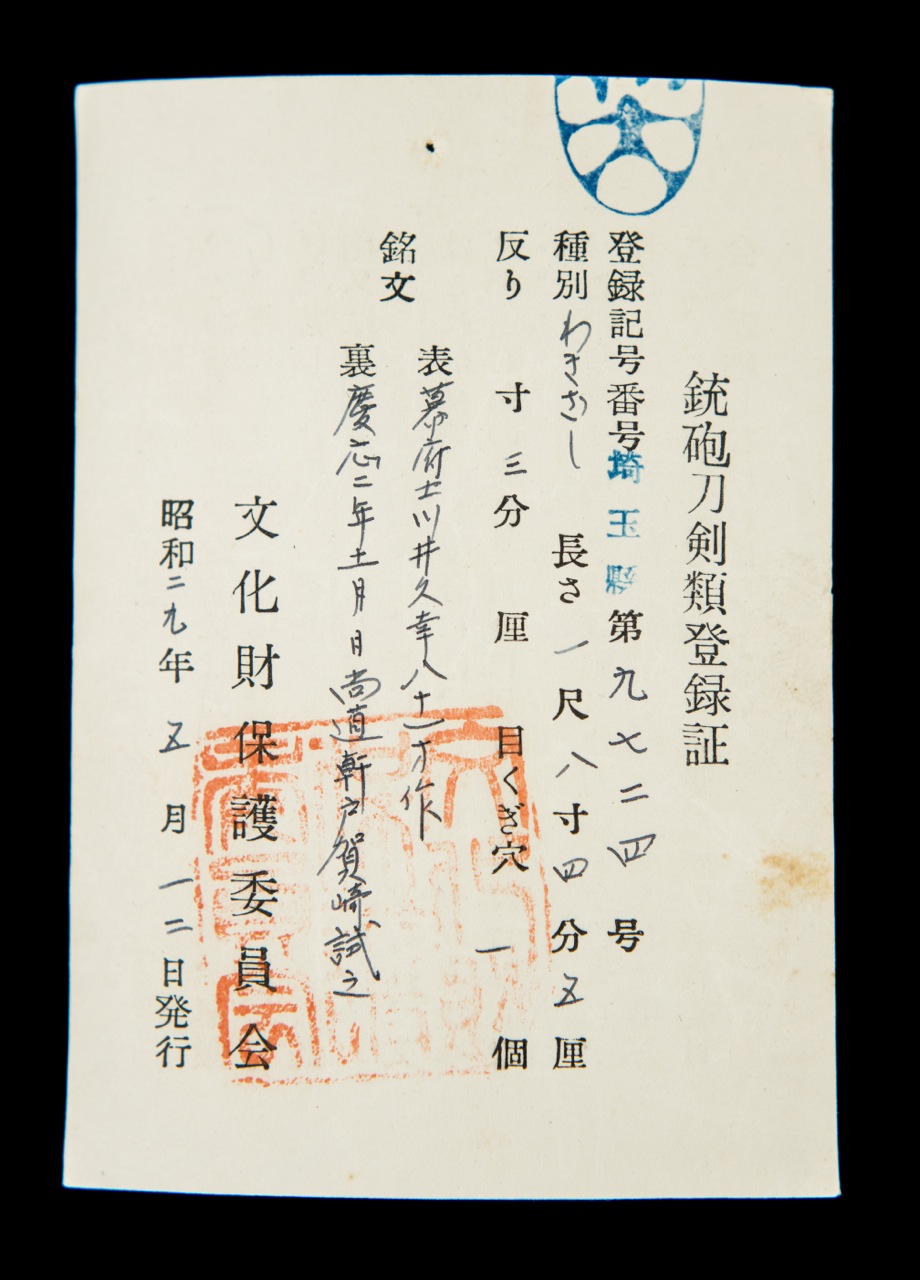 銃砲刀剣類登録証
登録記号番号埼玉縣第九七二四号
種別わきざし 長さ一尺八寸四分五厘
反り 寸三分 厘 目くぎ穴 一 個
銘文
表幕府士川井久幸八十一才作
裏慶応二年十一月日尚道軒戸賀崎試之
文化財保護委員会
昭和二九年五月一二日発行